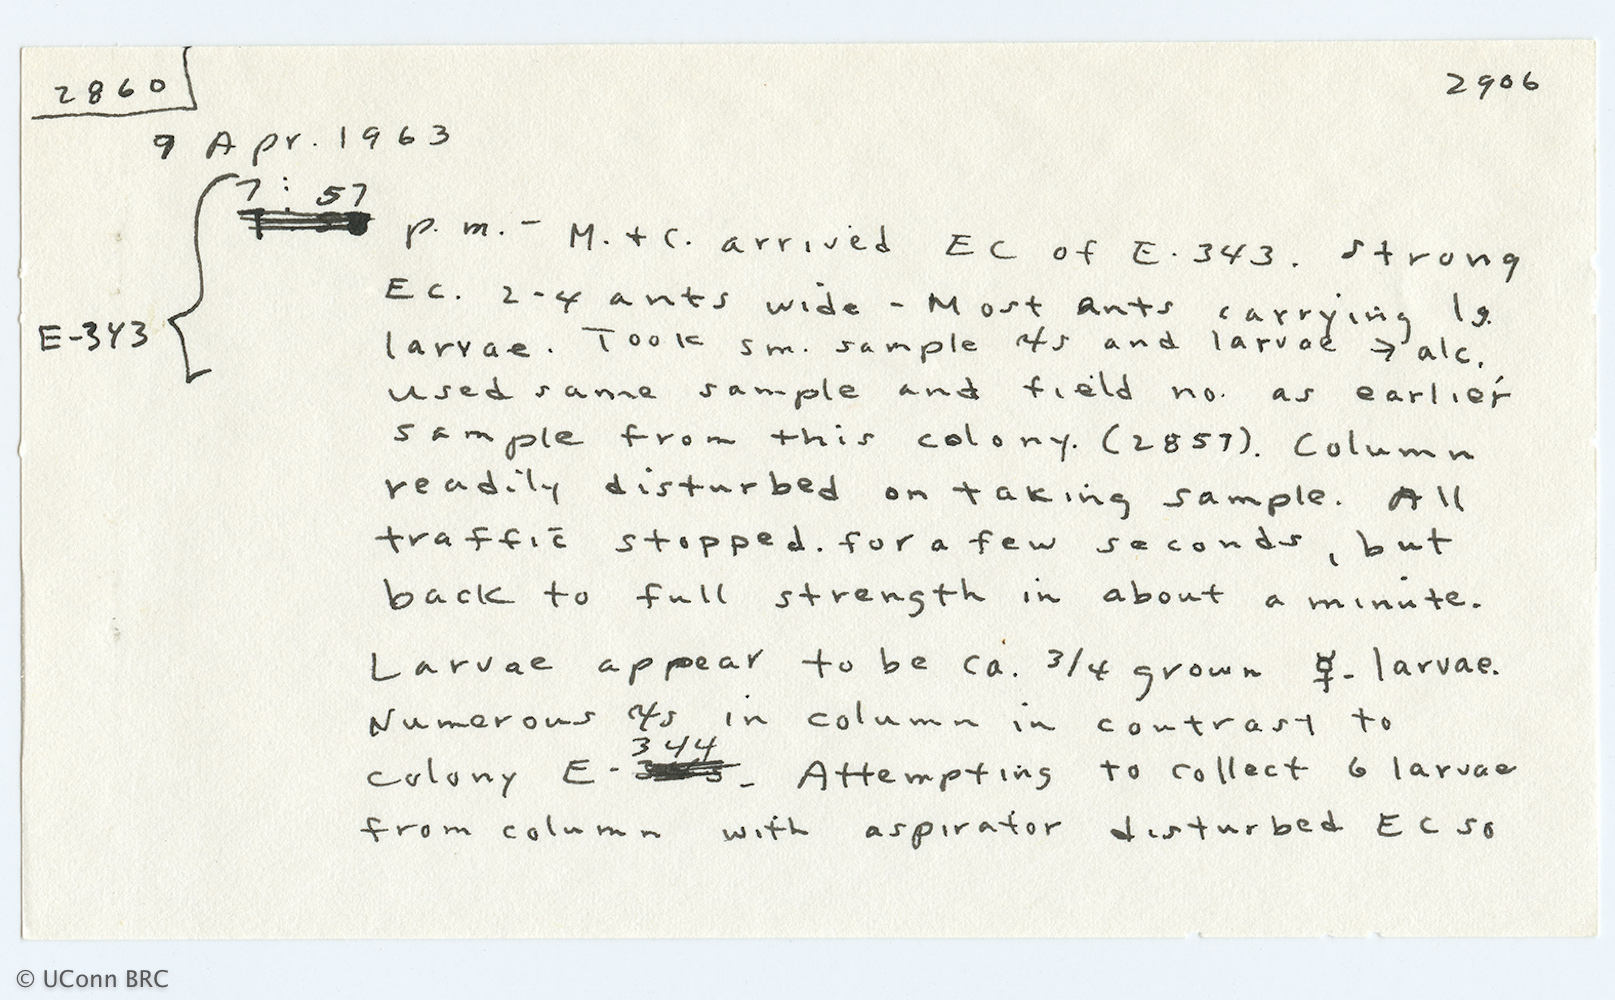 2860
2906
9 Apr. 1963
7:57
p.m. - M. + C. arrived EC of E-343. Strong
EC. 2-4 ants wide - Most ants carrying lg.
E-343
larvae. Took sm. sample and larvae → alc.
used same sample and field no. as earlier
sample from this colony. (2857). Column
readily disturbed on taking sample. All
traffic stopped. for a few seconds, but
back to full strength in about a minute.
Larvae appear to be ca. 3/4 grown ☿ - larvae.
Numerous in column in contrast to
344
colony E- - Attempting to collect 6 larvae
from column with aspirator disturbed EC so
© UConn BRC